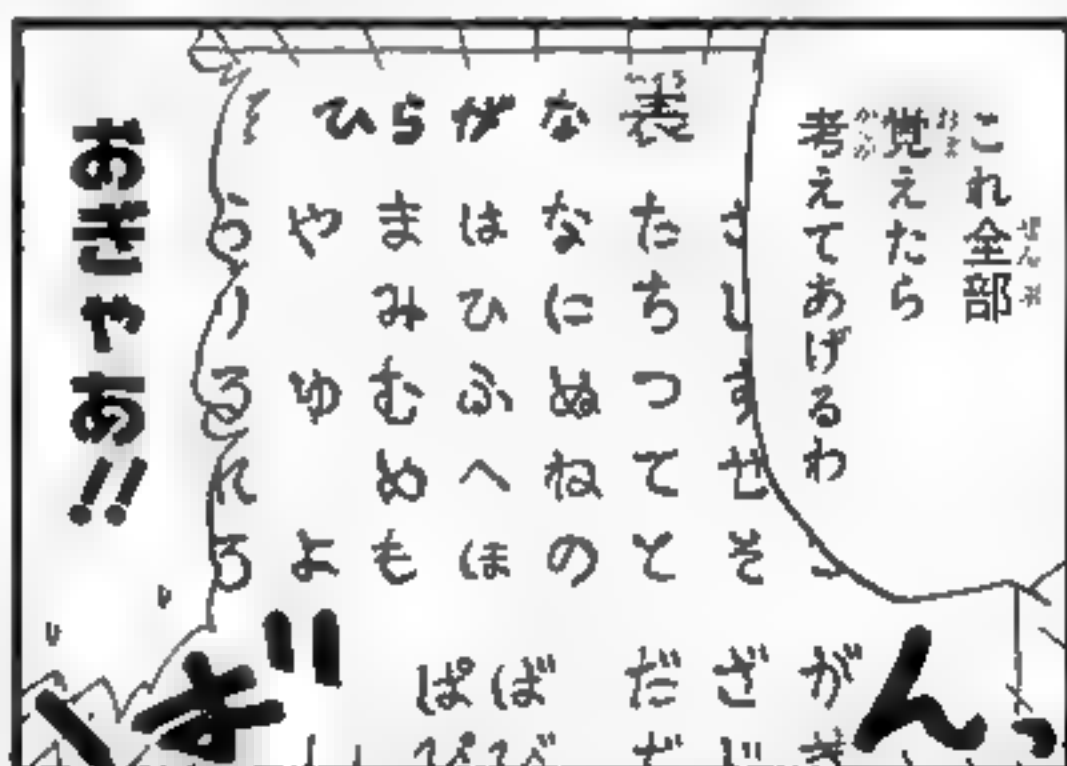 これ全部
覚えたら
考えてあげるわ
ひらがな表
さしすせそ
たちつてと
なにぬねの
はひふへほ
まみむめも
やゆよ
らりるれろ
が
ざ
だ
ば
ぱ
おぎゃあ!!